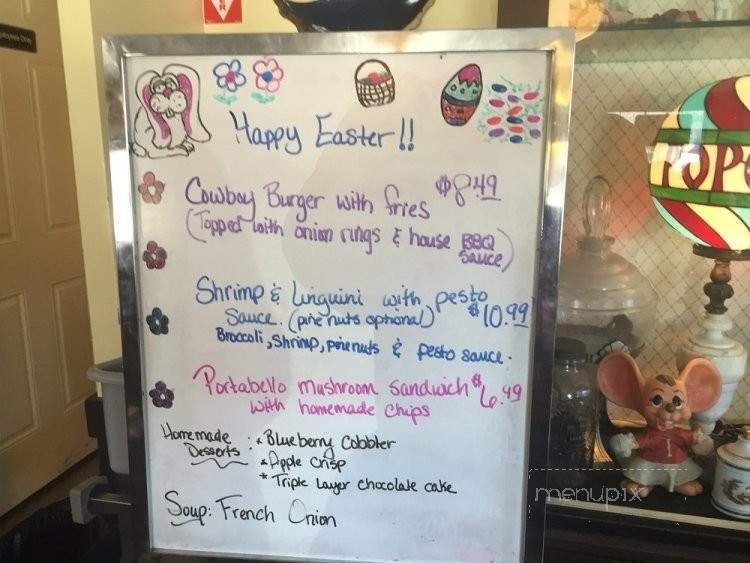 Happy Easter!!
Cowboy Burger with fries $8.49
(Topped with onion rings & house BBQ
Sauce)
Shrimp & Linguini with pesto
Sauce. (pine nuts optional) $10.99
Broccoli, Shrimp, pinenuts & pesto sauce.
Portabello mushroom sandwich $6.49
with homemade chips
Homemade Desserts: * Blueberry Cobbler
* Apple Crisp
* Triple Layer chocolate cake
Soup: French Onion
POP
menupix